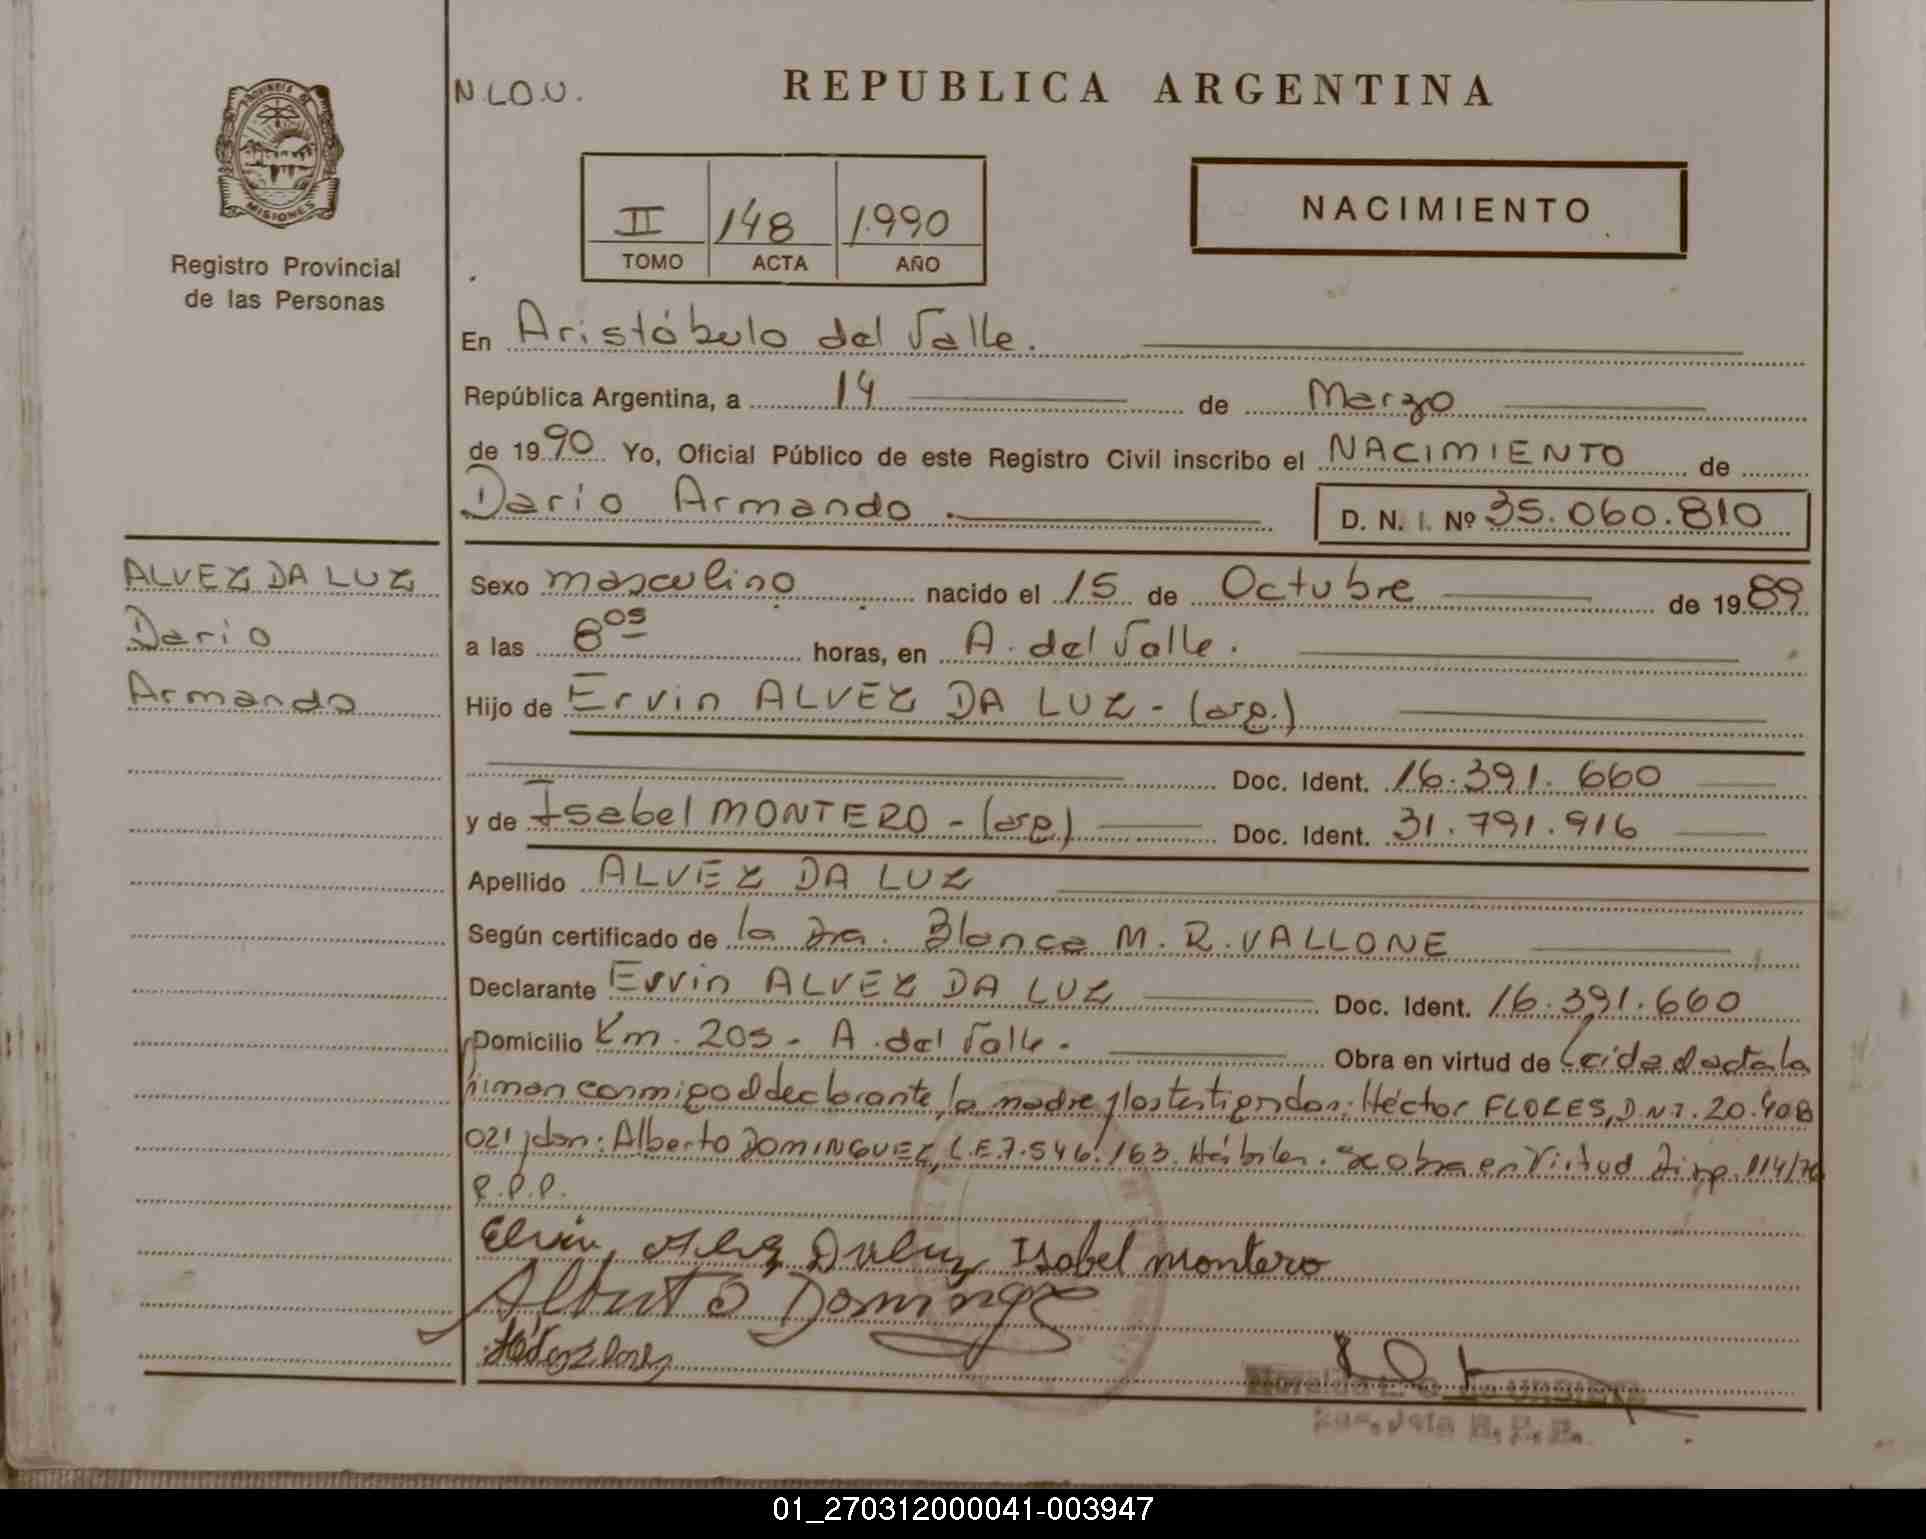 N.L.O.U.
REPUBLICA ARGENTINA
PROVINCIA DE
MISIONES
II 148 1.990
TOMO ACTA AÑO
NACIMIENTO
Registro Provincial
de las Personas
En Aristóbulo del Valle.
República Argentina, a 14 de Marzo
de 1990 Yo, Oficial Público de este Registro Civil inscribo el NACIMIENTO de
Dario Armando D. N. I. Nº 35.060.810
ALVEZ DA LUZ
Dario
Armando
Sexo masculino nacido el 15 de Octubre de 1989
a las 8os horas, en A. del Valle.
Hijo de Ervin ALVEZ DA LUZ - (arg.)
Doc. Ident. 16.391.660
y de Isabel MONTERO - (arg) Doc. Ident. 31.791.916
Apellido ALVEZ DA LUZ
Según certificado de la Dra. Blanca M. R. VALLONE
Declarante Ervin ALVEZ DA LUZ Doc. Ident. 16.391.660
Domicilio Km. 205 - A. del Valle - Obra en virtud de Leida el acta la
firman conmigo el declarante, la madre y los testigos don: Héctor FLORES, D.N.I. 20.408
021 y don: Alberto DOMINGUEZ, L.E. 7.546.163. Hábiles. Se obra en Virtud Disp. 114/76
R.P.P.
Isabel montero
Alberto Doming
01_270312000041-003947